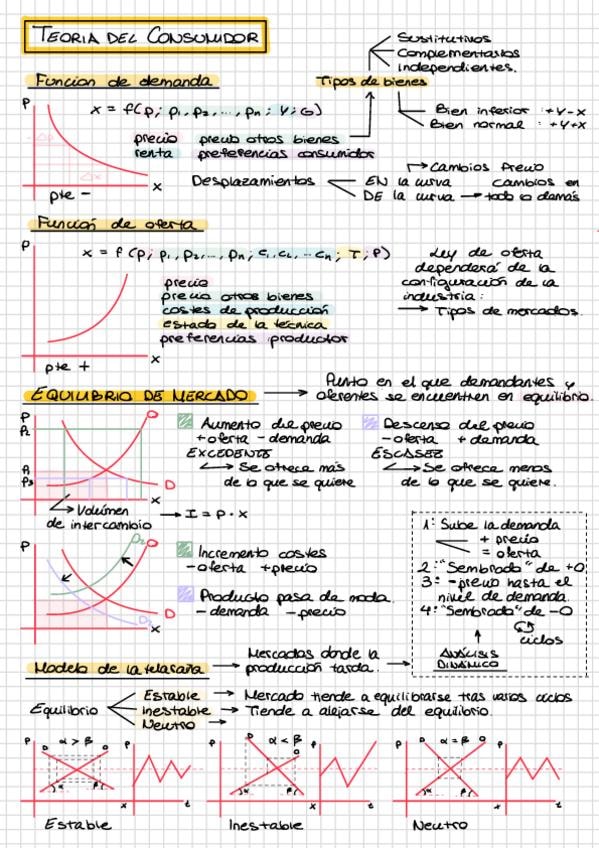 TEORIA DEL CONSUMIDOR
Sustitutivos
Complementarios
Independientes.
Tipos de bienes
Bien inferior : +Y-X
Bien normal : +Y+X
Funcion de demanda
P
X = f(p; p1, p2, ..., pn; Y; G)
precio precio otros bienes
renta preferencias consumidor
X
pte -
Desplazamientos
EN la curva
Cambios Precio
DE la curva → cambios en
todo lo demás
Función de oferta
P
X = f (p; p1, p2, ..., pn; c1, c2, ... cn; T; P)
precio
precio otros bienes
costes de producción
estado de la técnica
preferencias productor
X
pte +
Ley de oferta
dependerá de la
configuración de la
industria:
→ Tipos de mercados.
EQUILIBRIO DE MERCADO → Punto en el que demandantes y
oferentes se encuentren en equilibrio.
P
O
D
X
Aumento del precio
+oferta -demanda
EXCEDENTE
→ Se ofrece más
de lo que se quiere
Descenso del precio
-oferta +demanda
ESCASEZ
→ Se ofrece menos
de lo que se quiere.
Volúmen
de intercambio → I = P · X
P
O2
O
D
D2
X
Incremento costes
-oferta +precio
Producto pasa de moda
-demanda -precio
1: Sube la demanda
+ precio
= oferta
2: "Sembrado" de +O
3: -precio hasta el
nivel de demanda.
4: "Sembrado" de -O
ciclos
ANÁLISIS
DINÁMICO
Modelo de la telaraña → Mercados donde la
producción tarda. →
Equilibrio
Estable → Mercado tiende a equilibrarse tras varios ciclos
Inestable → Tiende a alejarse del equilibrio.
Neutro →
P D α > β O P
α β
X t
Estable
P D α < β O P
α β
X t
Inestable
P D α = β O P
α β
X t
Neutro